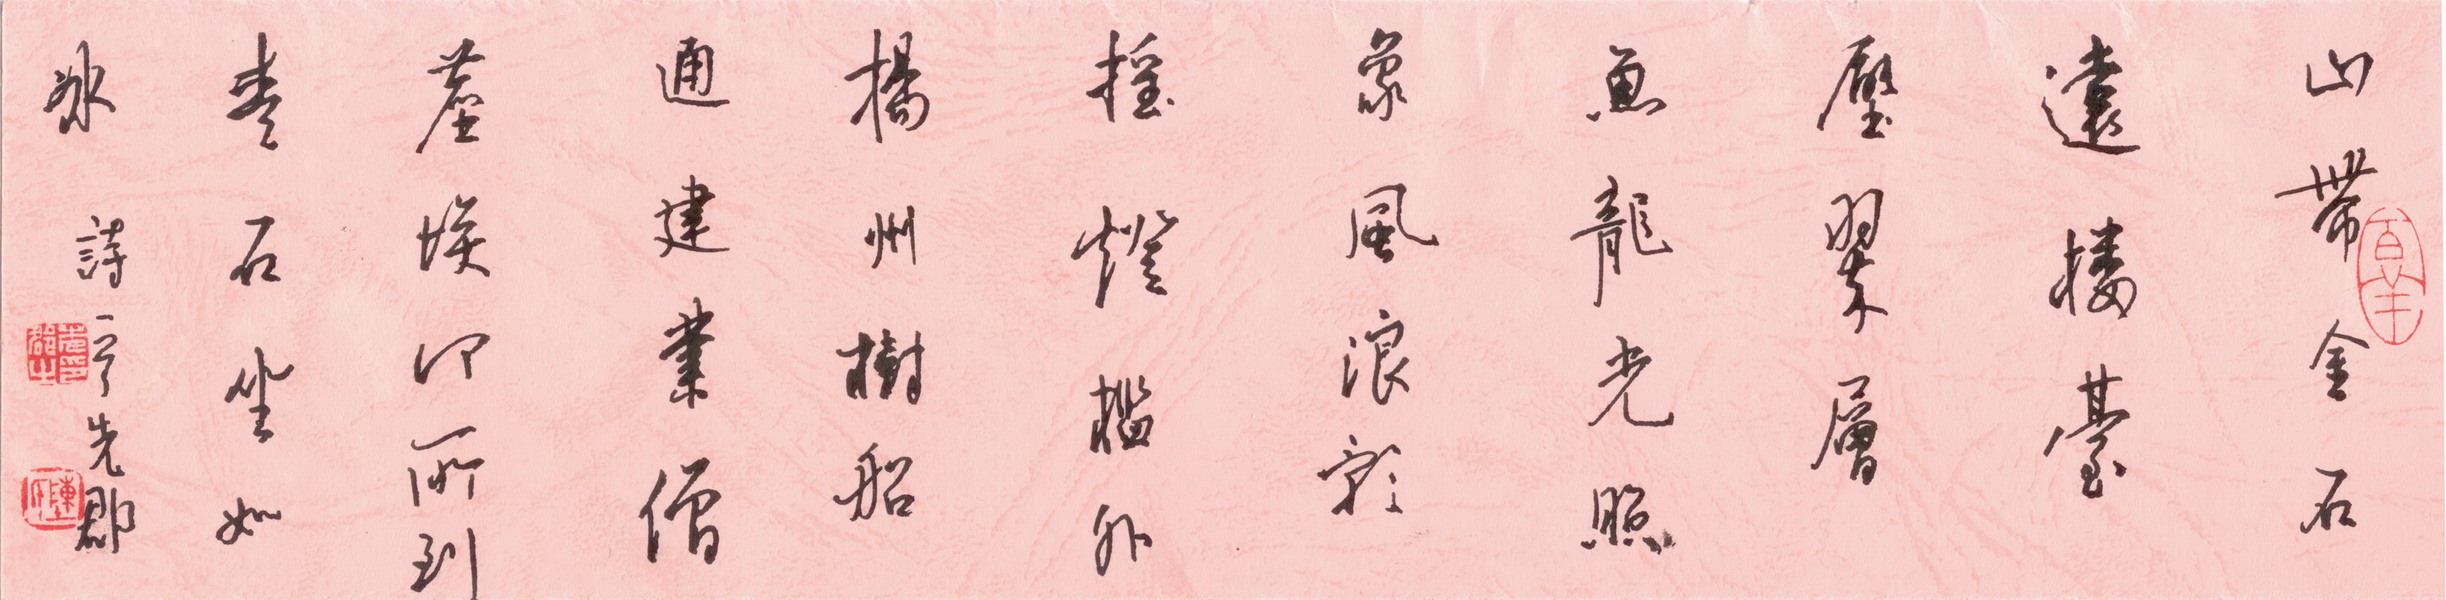 山帶金石
遠樓臺
壓翠層
魚龍光照
象風浪影
搖燈檻外
揚州樹船
通建業僧
塵埃何所到
青石坐如
冰
詩亨先郡